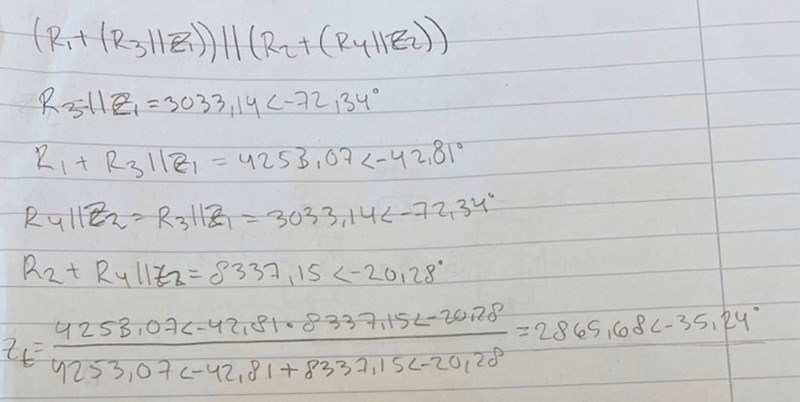 (R1+(R3||Z1))||(R2+(R4||Z2))
R3||Z1=3033,14<-72,34°
R1+R3||Z1=4253,07<-42,81°
R4||Z2=R3||Z1=3033,14<-72,34°
R2+R4||Z2=8337,15<-20,28°
Zt= 4253,07<-42,81•8337,15<-20,28 =2865,68<-35,24°
4253,07<-42,81+8337,15<-20,28